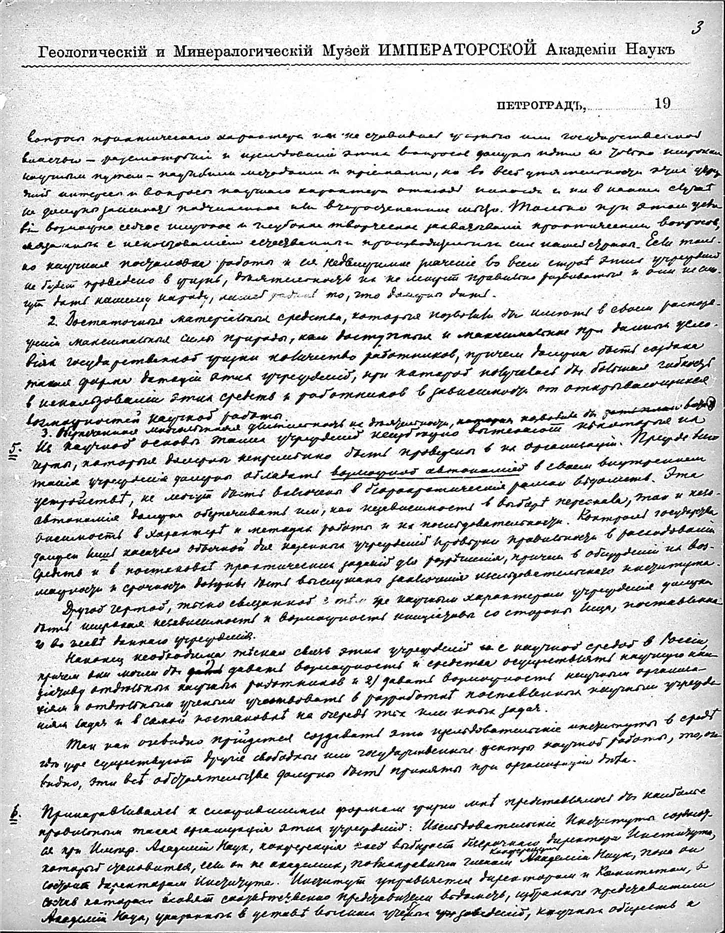 3
Геологическій и Минералогическій Музей ИМПЕРАТОРСКОЙ Академіи Наукъ
ПЕТРОГРАДЪ, 19
вопросы практическаго характера
властью — разсмотрѣніе и изслѣдованіе этих вопросов должно идти не только широким
научным путем — научными методами и пріемами, но во всей
интересы и вопросы научнаго характера
не должны занимать подчиненное или второстепенное мѣсто. Только при этом
возможно сейчас широкое и глубокое творческое захватываніе практических вопросов,
связанных с использованіем естественных производительных сил нашей страны. Если
научная постановка работы и ея значеніе во всем строѣ этих учрежденій
не будет проведено в жизнь, дѣятельность их не может правильно развиваться и они не
дать нашему народу, то, что должны дать.
2. Достаточныя матеріальныя средства, которыя позволили бы имѣть в своем распоря-
женіи максимальныя силы природы, нам доступныя и максимальное при данных усло-
віях государственной жизни количество работников, причем должна быть создана
такая форма дотацій этих учрежденій, при которой получалась бы большая гибкость
в использованіи этих средств и работников в зависимости от открывающихся
возможностей научной работы.
3. Обезпеченная длительность их дѣятельности, которая позволяла бы
5. Из научной основы таких учрежденій неизбѣжно вытекают нѣкоторыя их
черты, которыя должны непремѣнно быть проведены в их организаціи. Прежде всего
такія учрежденія должны обладать возможной автономіей в своем внутреннем
устройствѣ, не могут быть включены в бюрократическія рамки вѣдомств. Эта
автономія должна обезпечивать им, как независимость в выборѣ персонала, так и неза-
висимость в характерѣ и методах работы и их послѣдовательности. Контроль государства
должен касаться обычной для научных учрежденій провѣрки правильности в расходованіи
средств и в постановкѣ практических заданій для разрѣшенія, причем в обсужденіи их воз-
можности и срочности должно быть выслушано заключеніе изслѣдовательскаго института.
Другой чертой, тѣсно связанной с тѣм же научным характером учрежденія должна
быть широкая независимость и возможность иниціативы со стороны лица, поставленна-
го во главѣ даннаго учрежденія.
Наконец необходима тѣсная связь этих учрежденій с научной средой в Россіи,
причем они могли бы давать возможность и средства осуществлять научную ини-
ціативу отдѣльных научных работников и 2) давать возможность научным организа-
ціям и отдѣльным ученым участвовать в разработкѣ поставленных научным учрежде-
ніям задач и в самой постановкѣ на очередь тѣх или иных задач.
Так как очевидно придется создавать эти изслѣдовательскіе институты в средѣ
гдѣ уже существуют другіе свободные или государственные центры научной работы, то, оче-
видно, эти всѣ обстоятельства должны быть приняты при организаціи дѣла.
6. Приноравливаясь к сложившимся формам жизни мнѣ представлялось бы наиболѣе
правильным такая организація этих учрежденій: Изслѣдовательскіе Институты
при Импер. Академіи Наук, конференція выбирает директора Института,
который становится, если он не академик, полноправным членом Конференціи Академіи Наук, пока он
состоит директором Института. Институт управляется директором и Комитетом, в
состав котораго входят представители вѣдомств, избранные представители
Академіи Наук, указанных в уставѣ высших учебных заведеній, научных обществ и